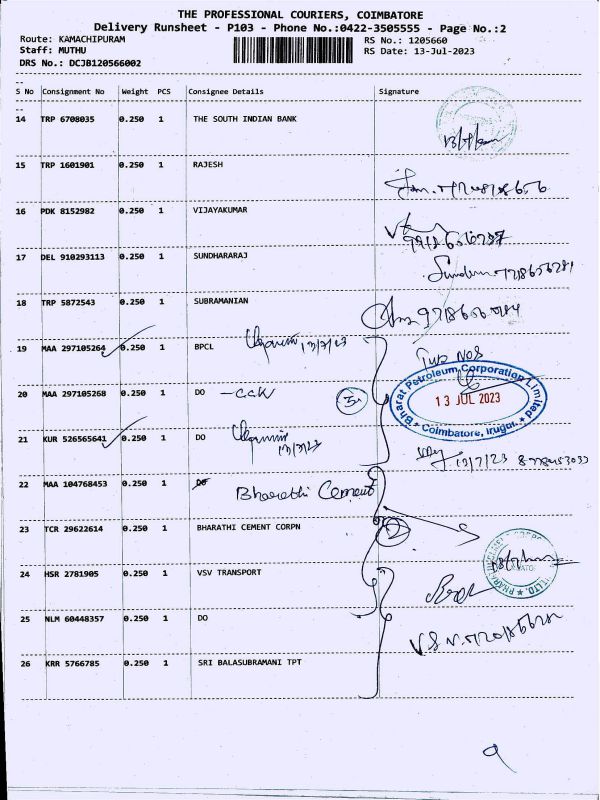 THE PROFESSIONAL COURIERS, COIMBATORE
Delivery Runsheet - P103 - Phone No.:0422-3505555 - Page No.:2
Route: KAMACHIPURAM RS No.: 1205660
Staff: MUTHU RS Date: 13-Jul-2023
DRS No.: DCJB120566002
S No Consignment No Weight PCS Consignee Details Signature
14 TRP 6708035 0.250 1 THE SOUTH INDIAN BANK
15 TRP 1601901 0.250 1 RAJESH
16 PDK 8152982 0.250 1 VIJAYAKUMAR
17 DEL 910293113 0.250 1 SUNDHARARAJ
18 TRP 5872543 0.250 1 SUBRAMANIAN
19 MAA 297105264 0.250 1 BPCL 13/7/23
Two NOS
20 MAA 297105268 0.250 1 DO
Bharat Petroleum Corporation Limited
13 JUL 2023
Coimbatore, Irugur.
21 KUR 526565641 0.250 1 DO 13/7/23
13/7/23
22 MAA 104768453 0.250 1 DO Bharathi Cement
23 TCR 29622614 0.250 1 BHARATHI CEMENT CORPN 2
24 HSR 2781905 0.250 1 VSV TRANSPORT
25 NLM 60448357 0.250 1 DO
26 KRR 5766785 0.250 1 SRI BALASUBRAMANI TPT